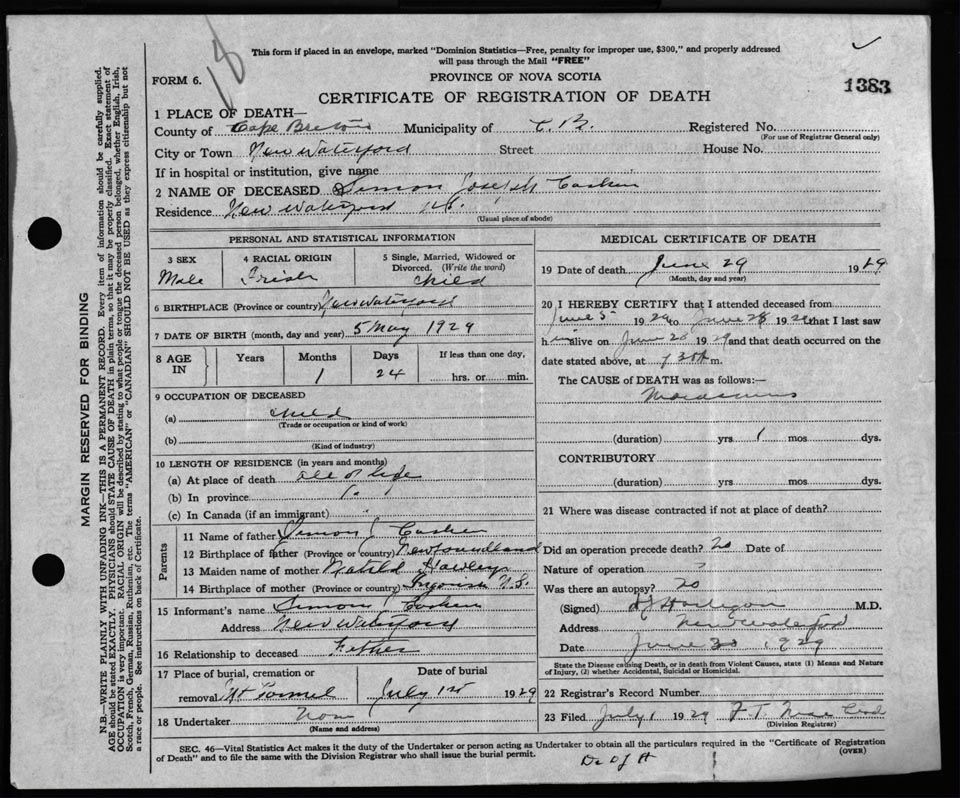 18
This form if placed in an envelope, marked "Dominion Statistics—Free, penalty for improper use, $300," and properly addressed
will pass through the Mail "FREE"
FORM 6.
PROVINCE OF NOVA SCOTIA
1383
CERTIFICATE OF REGISTRATION OF DEATH
1 PLACE OF DEATH—
County of Cape Breton Municipality of C. B. Registered No.
(For use of Registrar General only)
City or Town New Waterford Street House No.
If in hospital or institution, give name
2 NAME OF DECEASED Simon Joseph
Residence New Waterford N.S.
(Usual place of abode)
PERSONAL AND STATISTICAL INFORMATION
3 SEX 4 RACIAL ORIGIN 5 Single, Married, Widowed or Divorced. (Write the word)
Male Irish Child
6 BIRTHPLACE (Province or country) New Waterford
7 DATE OF BIRTH (month, day and year) 5 May 1929
8 AGE IN Years Months Days If less than one day,
1 24 hrs. or min.
9 OCCUPATION OF DECEASED
(a) child
(Trade or occupation or kind of work)
(b)
(Kind of industry)
10 LENGTH OF RESIDENCE (in years and months)
(a) At place of death all of life
(b) In province
(c) In Canada (if an immigrant)
Parents
11 Name of father Simon J
12 Birthplace of father (Province or country) Newfoundland
13 Maiden name of mother
14 Birthplace of mother (Province or country) Ingonish N.S.
15 Informant's name Simon J
Address New Waterford
16 Relationship to deceased Father
17 Place of burial, cremation or removal Mt Carmel Date of burial July 1st 1929
18 Undertaker None
(Name and address)
MEDICAL CERTIFICATE OF DEATH
19 Date of death June 29 1929
(Month, day and year)
20 I HEREBY CERTIFY that I attended deceased from
June 5 1929 to June 28 1929 that I last saw
him alive on June 28 1929 and that death occurred on the
date stated above, at m.
The CAUSE of DEATH was as follows:—
Marasmus
(duration) yrs 1 mos dys.
CONTRIBUTORY
(duration) yrs. mos. dys.
21 Where was disease contracted if not at place of death?
Did an operation precede death? no Date of
Nature of operation ?
Was there an autopsy? no
(Signed) M.D.
Address New Waterford
Date June 30 1929
State the Disease causing Death, or in death from Violent Causes, state (1) Means and Nature
of Injury, (2) whether Accidental, Suicidal or Homicidal.
22 Registrar's Record Number
23 Filed July 1 1929 F. T.
(Division Registrar)
SEC. 46—Vital Statistics Act makes it the duty of the Undertaker or person acting as Undertaker to obtain all the particulars required in the "Certificate of Registration
of Death" and to file the same with the Division Registrar who shall issue the burial permit.
(OVER)
MARGIN RESERVED FOR BINDING
N.B.—WRITE PLAINLY WITH UNFADING INK—THIS IS A PERMANENT RECORD. Every item of information should be carefully supplied.
AGE should be stated EXACTLY. PHYSICIANS should STATE CAUSE OF DEATH in plain terms, so that it may be properly classified. Exact statement of
OCCUPATION is very important. RACIAL ORIGIN will be described by stating to what people or tongue the deceased person belonged, whether English, Irish,
Scotch, French, German, Russian, Ruthenian, etc. The terms "AMERICAN" or "CANADIAN" SHOULD NOT BE USED as they express citizenship but not
a race or people. See instructions on back of Certificate.